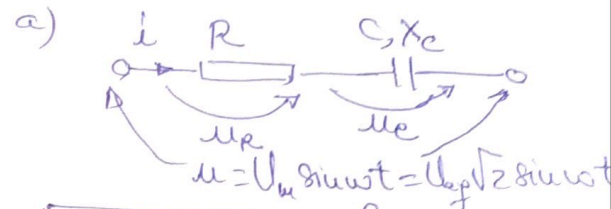 a) i R C, Xc
uR uc
u = Um sin ωt = Uеф √2 sin ωt